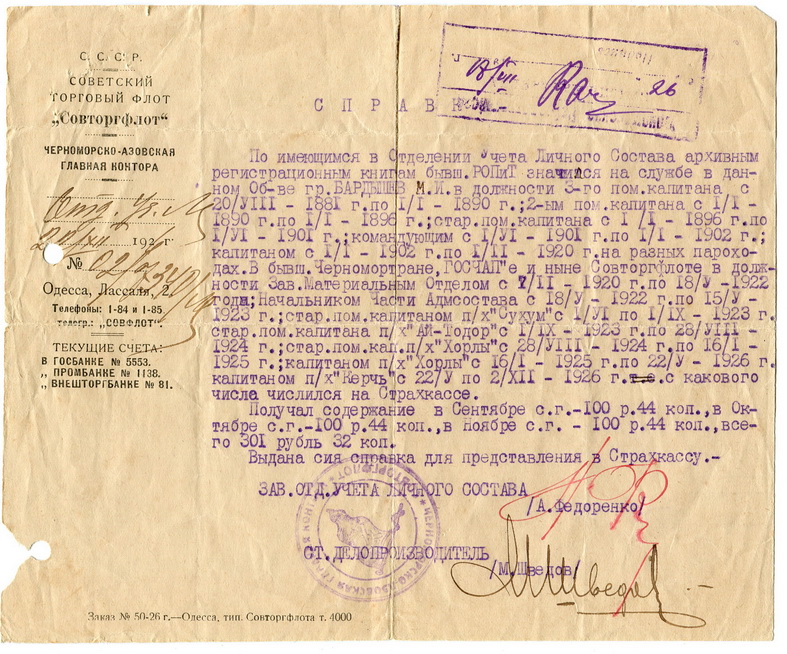 С. С. С. Р.
СОВЕТСКИЙ
ТОРГОВЫЙ ФЛОТ
„Совторгфлот“
ЧЕРНОМОРСКО-АЗОВСКАЯ
ГЛАВНАЯ КОНТОРА
192 г.
№
Одесса, Лассаля, 2
Телефоны: 1-84 и 1-85.
телегр.: „СОВФЛОТ“.
ТЕКУЩИЕ СЧЕТА:
В ГОСБАНКЕ № 5553.
„ ПРОМБАНКЕ № 1138.
„ ВНЕШТОРГБАНКЕ № 81.
18/VII 26
С П Р А В К А.-
По имеющимся в Отделении Учета Личного Состава архивным
регистрационным книгам бывш.РОПиТ значился на службе в дан-
ном Об-ве гр.БАРДЫШЕВ М.И.в должности 3-го пом.капитана с
20/VIII - 1881 г.по 1/I - 1890 г.;2-ым пом.капитана с 1/I -
1890 г.по 1/I - 1896 г.;стар.пом.капитана с 1/I - 1896 г.по
1/VI - 1901 г.;командующим с 1/VI - 1901 г.по 1/I - 1902 г.;
капитаном с 1/I - 1902 г.по 1/II - 1920 г.на разных парохо-
дах.В бывш.Черномортране,ГОСЧАП'е и ныне Совторгфлоте в долж-
ности Зав.Материальным Отделом с 1/II - 1920 г.по 18/V -1922
года;Начальником Части Адмсостава с 18/V - 1922 г.по 15/V -
1923 г.;стар.пом.капитаном п/х"Сухум" с 1/VI по 1/IX - 1923 г.
стар.пом.капитана п/х"Ай-Тодор" с 1/IX - 1923 г.по 28/VIII -
1924 г.;стар.пом.кап.п/х"Хорлы" с 28/VIII - 1924 г.по 16/I -
1925 г.;капитаном п/х"Хорлы" с 16/I - 1925 г.по 22/V - 1926 г.
капитаном п/х"Керчь" с 22/V по 2/XII - 1926 г.т.е.с какового
числа числился на Страхкассе.
Получал содержание в Сентябре с.г.-100 р.44 коп.,в Ок-
тябре с.г.-100 р.44 коп.,в Ноябре с.г. - 100 р.44 коп.,все-
го 301 рубль 32 коп.
Выдана сия справка для представления в Страхкассу.-
ЗАВ.ОТД.УЧЕТА ЛИЧНОГО СОСТАВА
/А.Федоренко/
СТ.ДЕЛОПРОИЗВОДИТЕЛЬ
/М.Шведов/
Заказ № 50-26 г.—Одесса, тип. Совторгфлота т. 4000